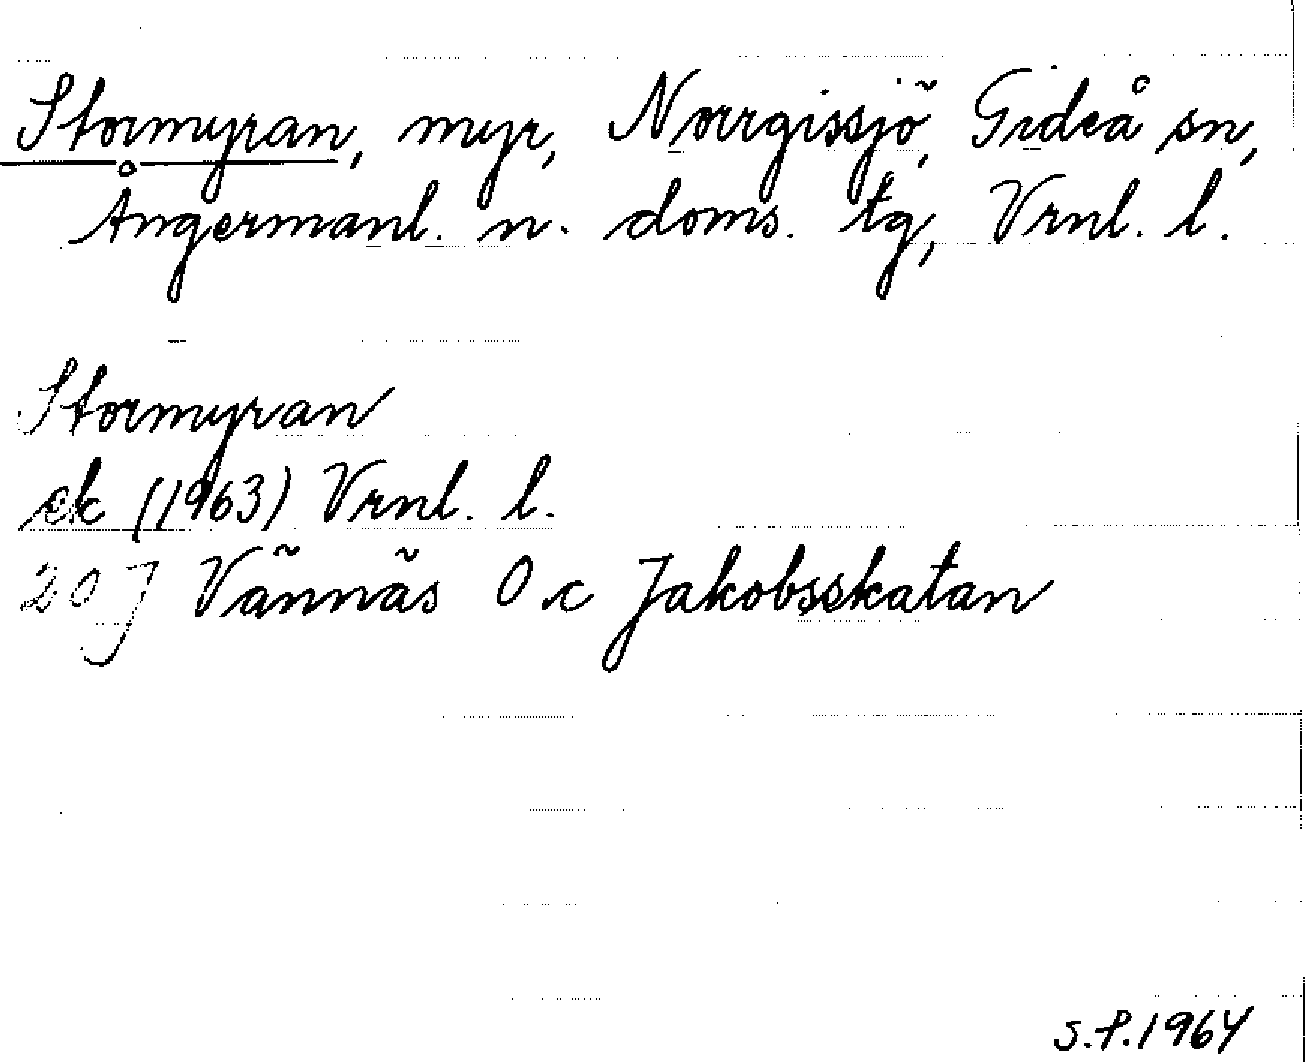 Stormyran, myr, Norrgissjö, Gideå sn,
Ångermanl. n. doms. tg, Vrnl. l.
Stormyran
ek (1963) Vrnl. l.
20 J Vännäs O c Jakobsskatan
S.P. 1964